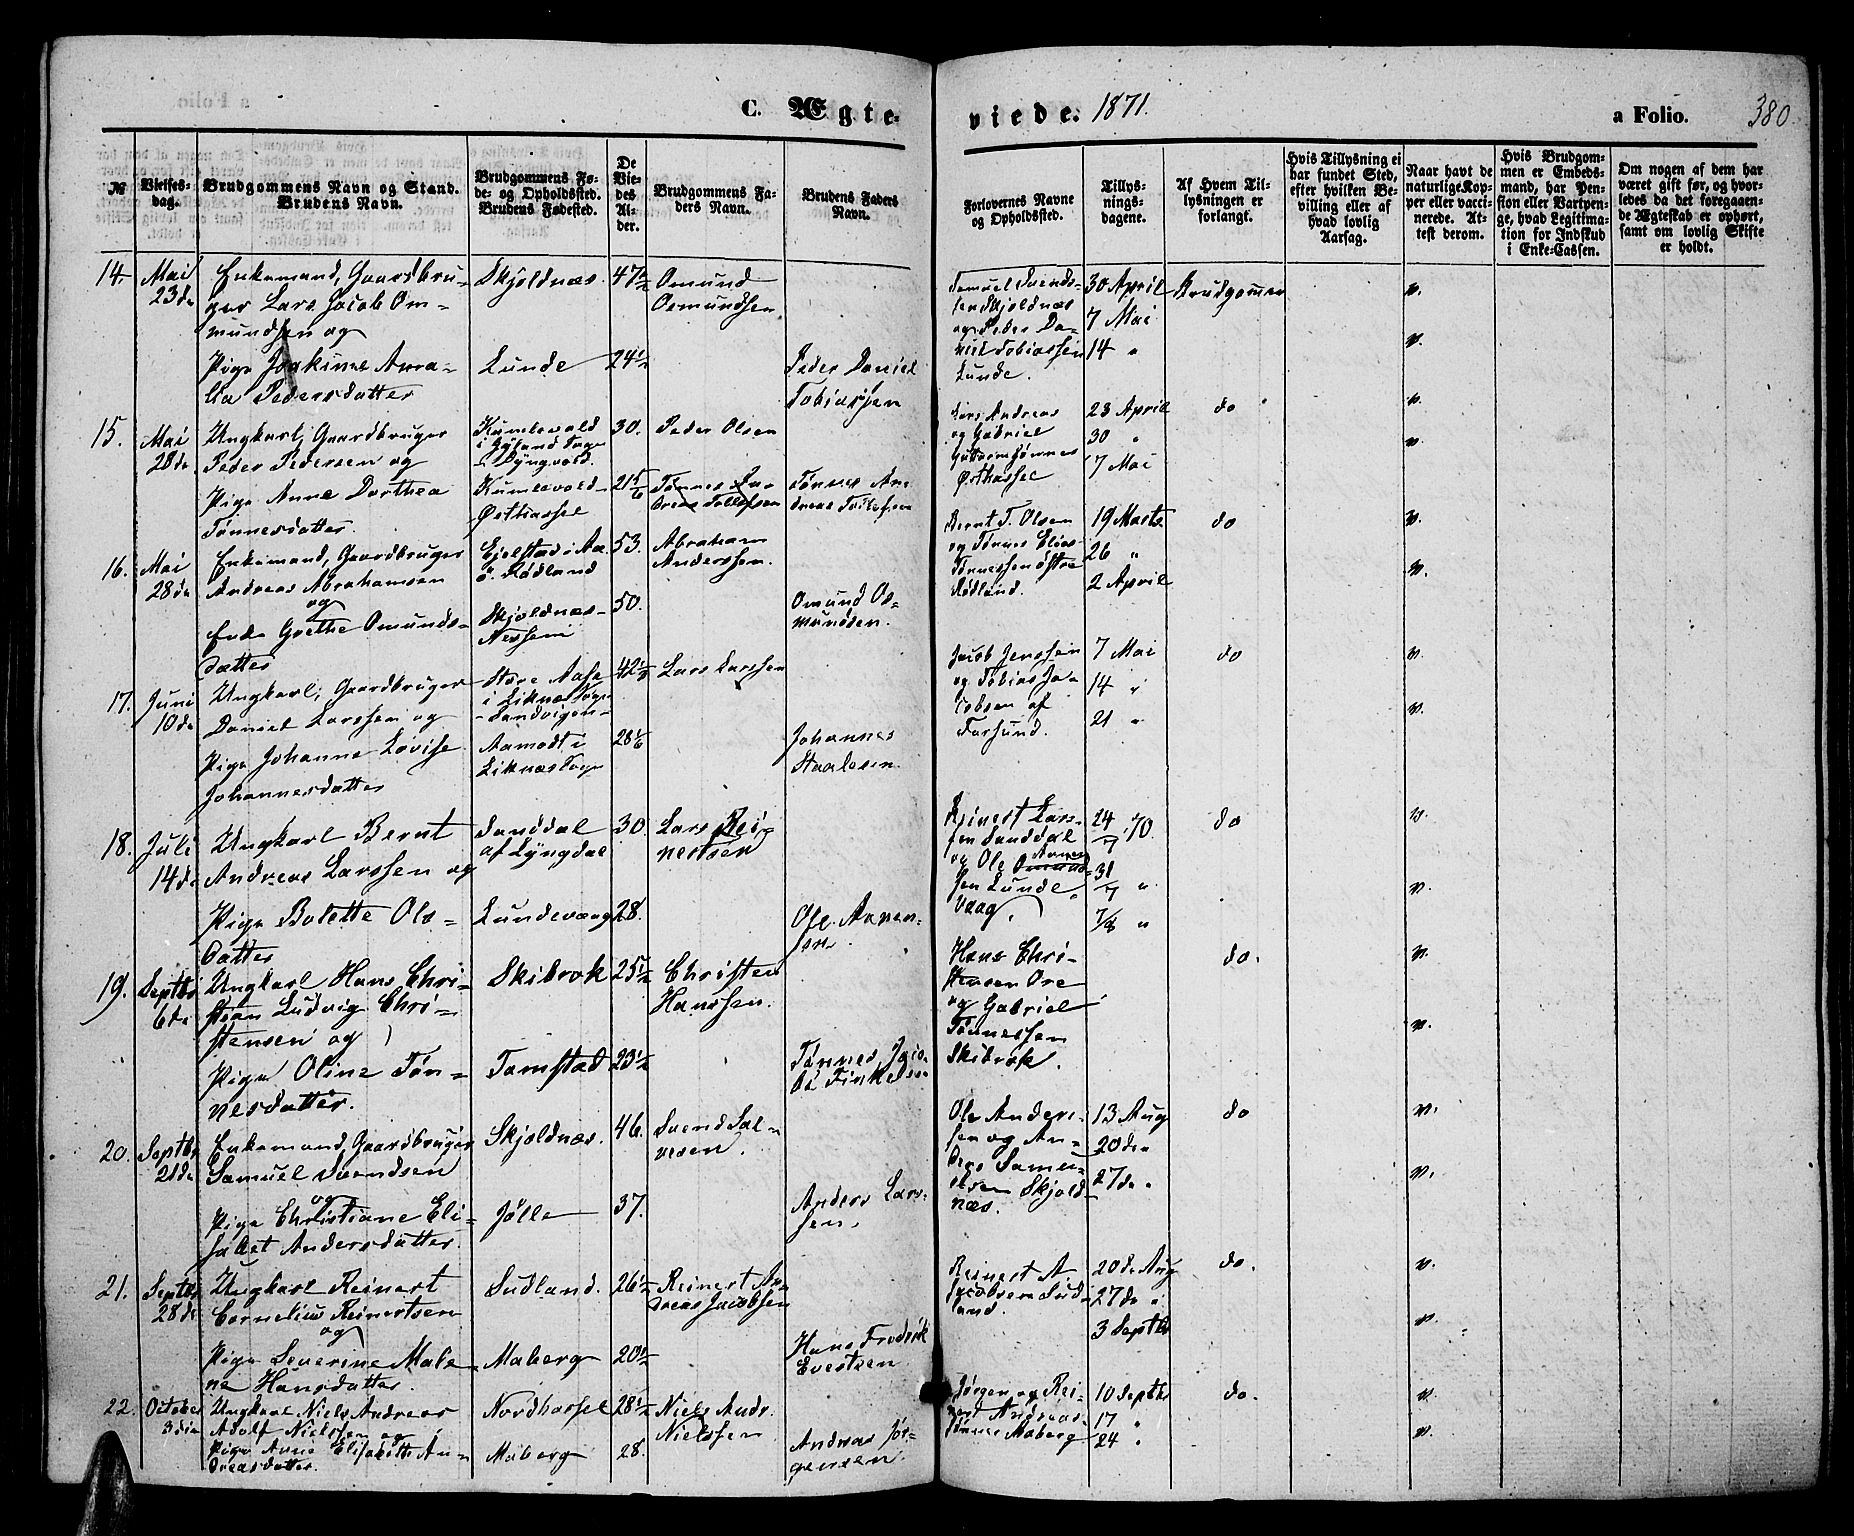 C. Ægte-
viede. 1871.
a Folio. 380.
№
Vielses-
dag.
Brudgommens Navn og Stand.
Brudens Navn.
Brudgommens Fø-
de- og Opholdssted.
Brudens Fødested.
De
Vie-
des
Al-
der.
Brudgommens Fa-
ders Navn.
Brudens Faders
Navn.
Forlovernes Navne
og Opholdssted.
Tillys-
nings-
dagene.
Af Hvem Til-
lysningen er
forlangt.
Hvis Tillysning ei
har fundet Sted,
efter hvilken Be-
villing eller af
hvad lovlig
Aarsag.
Naar havt de
naturlige Kop-
per eller vacci-
nerede. At-
test derom.
Hvis Brudgom-
men er Embeds-
mand, har Pen-
sion eller Vartpen-
ge, hvad Legitima-
tion for Indskud
i Enke-Cassen.
Om nogen af dem har
været gift før, og hvor-
ledes da det foregaaen-
de Ægteskab er ophørt,
samt om lovlig Skifte
er holdt.
14. Mai
23de
Enkemand, Gaardbru-
ger Lars Jacob Om-
mundsen og
Pige Joakime Ama-
lia Pedersdatter
Skjoldnæs. 47½
Lunde 24½
Osmund
Osmundsen.
Peder Daniel
Tobiassen
Samuel Svends-
sen Skjoldnæs
og Peder Da-
niel Tobiassen
Lunde.
30 April
7 Mai
14 "
Brudgommen
v.
v.
15. Mai
28de
Ungkarl, Gaardbruger
Peder Pedersen og
Pige Anne Dorthea
Tønnesdatter
Kumlevold
i Gyland Sogn
- Lyngvold.
Kumlevold-
Østhassel
30.
21 5/6
Peder Olsen
Tønnes An-
dreas Tollefsen
Tønnes An-
dreas Tollefsen
Lars Andreas
og Gabriel
Guttormsønner
Østhassel
23 April
30 "
7 Mai
do
v.
v.
16. Mai
28de
Enkemand, Gaardbruger
Andreas Abrahamsen
og
Enke Grethe Omunds-
datter
Ejelstad i Aa
ø. Rødland
Skjoldnæs-
Nessemi
53.
50.
Abraham
Anderssen.
Omund Os-
mundsen.
Bernt T. Olsen
og Tønnes Elias
Tønnessen østre
Rødland.
19 Marts
26 "
2 April
do
v.
v.
17. Juni
10de
Ungkarl, Gaardbruger
Daniel Larssen og
Pige Johanne Lovise
Johannesdatter
Store Aase
i Liknes Sogn
- Sandvigen-
Aamodt i
Liknæs Sogn
42½
28 1/6
Lars Larssen
Johannes
Staalesen.
Jacob Jenssen
og Tobias Ja-
cobsen af
Farsund.
7 Mai
14 "
21 "
do
v.
v.
18. Juli
14de
Ungkarl Bernt
Andreas Larssen og
Pige Bolette Ols-
datter
Sanddal
af Lyngdal
Lundevaag
30.
28.
Lars Rei-
nertsen
Ole Aanen-
sen.
Reinert Lars-
sen Sanddal
og Ole Aanen-
sen Lunde
vaag.
24/7 70.
31/7 "
7/8 "
do
v.
v.
19. Septbr
6te
Ungkarl Hans Chri-
stian Ludvig Chri-
stensen og
Pige Oline Tøn-
nesdatter.
Skibrok
Tomstad
25½
23½
Christen
Hanssen.
Tønnes Jaco-
bi Finkelsen
Hans Chri-
stensen Ore
og Gabriel
Tønnessen
Skibrok.
do.
v.
v.
20. Septbr
21de
Enkemand, Gaardbruger
Samuel Svendsen
og
Pige Christiane Eli-
sabet Andersdatter.
Skjoldnæs.
Jølle
46.
37.
Svend Sal-
vesen.
Anders Lars-
sen.
Ole Ander-
sen og An-
dreas Samu-
elsen Skjold-
næs.
13 Aug
20de
27de "
do
v.
v.
21. Septbr
28de
Ungkarl Reinert
Cornelius Reinertsen
og
Pige Severine Male-
ne Hansdatter.
Sudland.
Maberg
26½
20½
Reinert An-
dreas Jacobsen
Hans Fredrik
Evertsen
Reinert A.
Jacobsen Sud-
land.
20de Aug
27de "
3 Septbr
do.
v.
v.
22. October
3die
Ungkarl Niels Andreas
Adolf Nielssen og
Pige Anne Elisabeth An-
dreasdatter.
Nordhassel
Maberg
28½
28.
Niels Andr.
Nielssen
Andreas Jør-
gensen.
Jørgen og Rei-
nert Andreas-
sønner Maberg
10 Septbr
17 "
24 "
do.
v.
v.